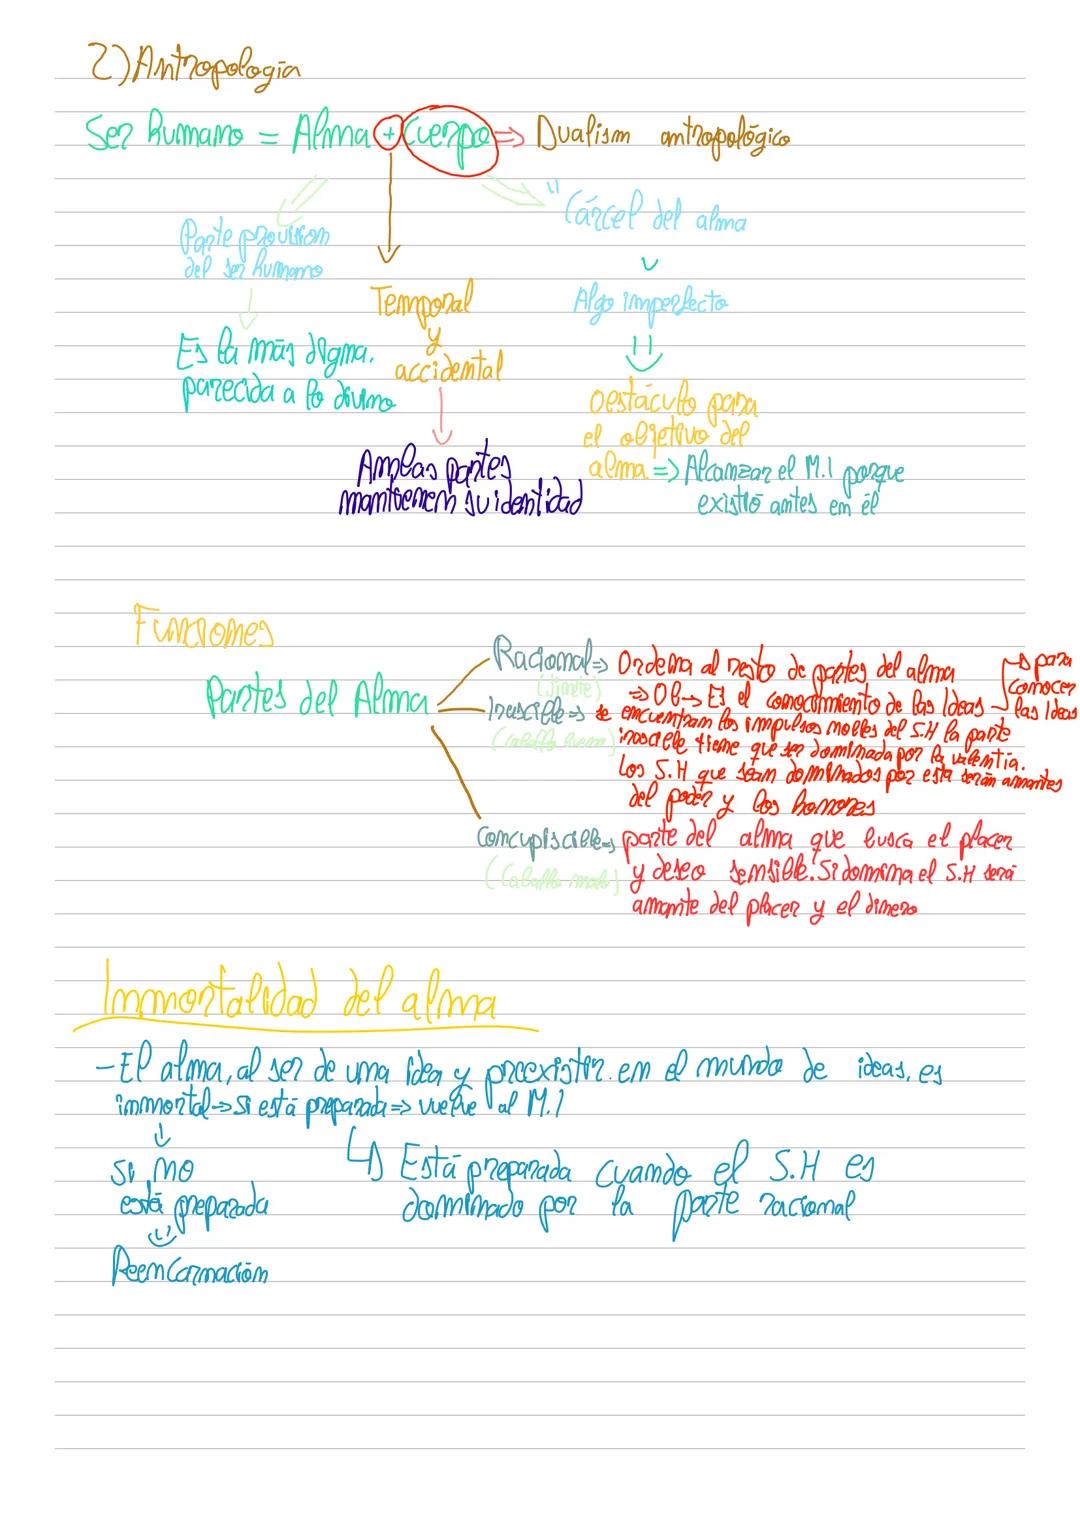 2) Antropología
Ser humano = Alma + Cuerpo => Dualism antropológico
"Cárcel del alma
Parte
del ser humano
Temporal
y
accidental
Algo imperfecto
Es la más digna.
parecida a lo divino
Obstáculo para
el objetivo del
alma => Alcanzar el M.I porque
existió antes en él
Ambas partes
mantienen su identidad
Funciones
Partes del Alma
Racional => Ordena al resto de partes del alma
(Jinete) => Ob -> Es el conocimiento de las Ideas
para
conocer
las Ideas
Irascible => se encuentran los impulsos nobles del S.H la parte
(caballo bueno) irascible tiene que ser dominada por la valentía.
Los S.H que sean dominados por esta serán amantes
del poder y los honores
Concupiscible => parte del alma que busca el placer
(Caballo malo) y deseo sensible. Si domina el S.H será
amante del placer y el dinero
Inmortalidad del alma
- El alma, al ser de una idea y preexistir en el mundo de ideas, es
inmortal -> si está preparada => vuelve al M.I
Si no
está preparada
Está preparada cuando el S.H es
dominado por la parte racional
Reencarnación